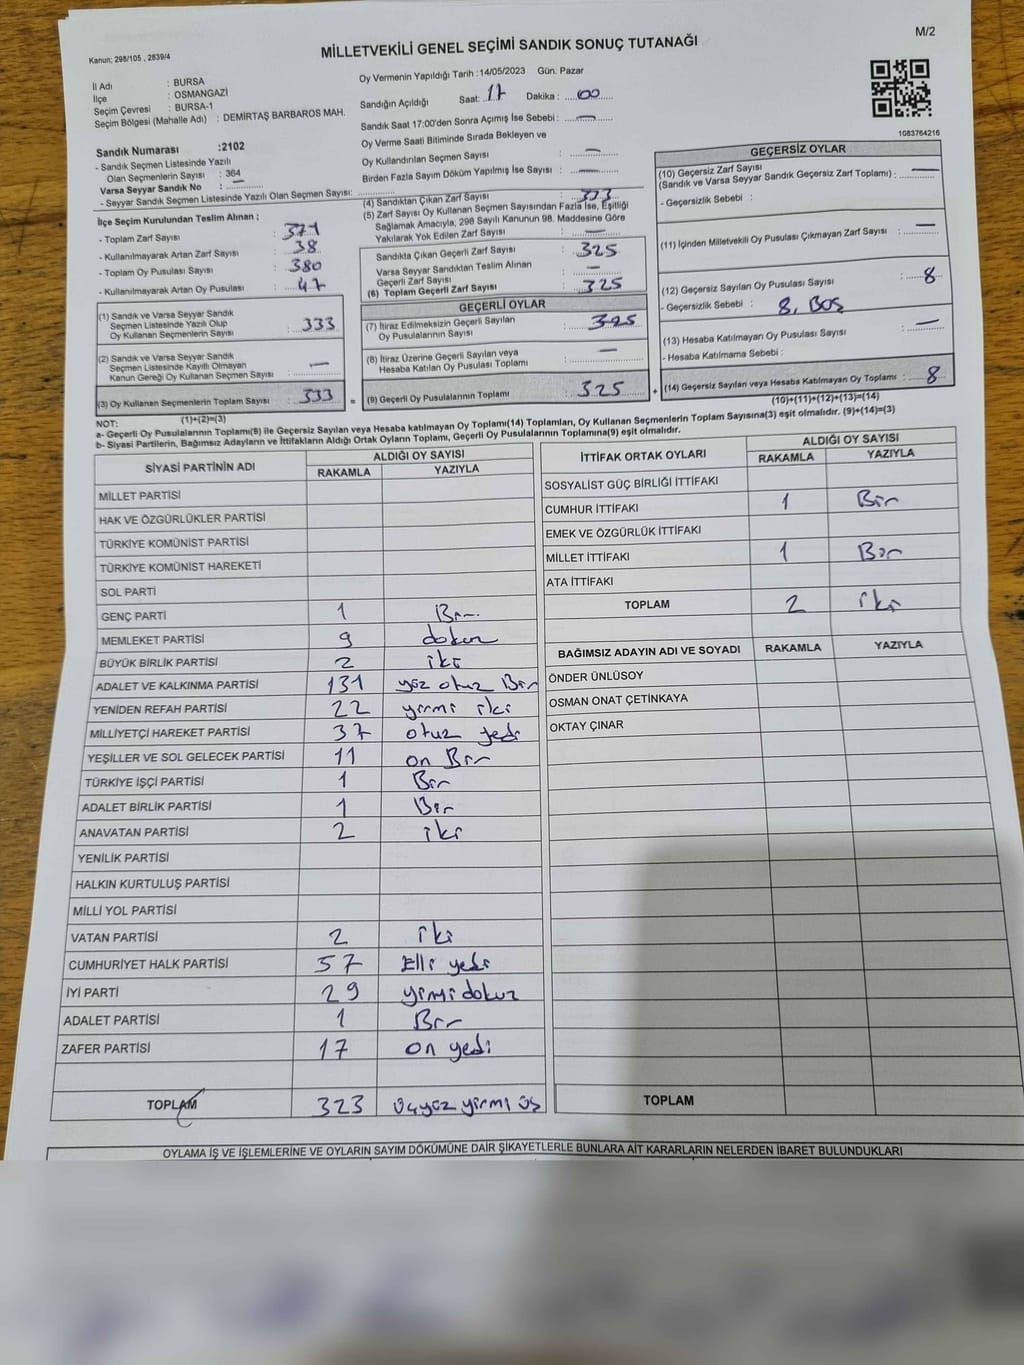 M/2
Kanun; 298/105 , 2839/4
MİLLETVEKİLİ GENEL SEÇİMİ SANDIK SONUÇ TUTANAĞI
İl Adı : BURSA
İlçe : OSMANGAZİ
Seçim Çevresi : BURSA-1
Seçim Bölgesi (Mahalle Adı) : DEMİRTAŞ BARBAROS MAH.
Oy Vermenin Yapıldığı Tarih :14/05/2023 Gün: Pazar
Sandığın Açıldığı Saat: 17 Dakika : 00
Sandık Saat 17:00'den Sonra Açımış İse Sebebi : —
Oy Verme Saati Bitiminde Sırada Bekleyen ve
Oy Kullandırılan Seçmen Sayısı : —
Birden Fazla Sayım Döküm Yapılmış İse Sayısı : —
1083764216
Sandık Numarası :2102
- Sandık Seçmen Listesinde Yazılı
Olan Seçmenlerin Sayısı : 364
Varsa Seyyar Sandık No : —
- Seyyar Sandık Seçmen Listesinde Yazılı Olan Seçmen Sayısı:
İlçe Seçim Kurulundan Teslim Alınan ;
- Toplam Zarf Sayısı : 371
- Kullanılmayarak Artan Zarf Sayısı : 38
- Toplam Oy Pusulası Sayısı : 380
- Kullanılmayarak Artan Oy Pusulası : 47
(1) Sandık ve Varsa Seyyar Sandık
Seçmen Listesinde Yazılı Olup
Oy Kullanan Seçmenlerin Sayısı : 333
(2) Sandık ve Varsa Seyyar Sandık
Seçmen Listesinde Kayıtlı Olmayan
Kanun Gereği Oy Kullanan Seçmen Sayısı : —
(3) Oy Kullanan Seçmenlerin Toplam Sayısı : 333
(1)+(2)=(3)
(4) Sandıktan Çıkan Zarf Sayısı :
(5) Zarf Sayısı Oy Kullanan Seçmen Sayısından Fazla İse, Eşitliği
Sağlamak Amacıyla, 298 Sayılı Kanunun 98. Maddesine Göre
Yakılarak Yok Edilen Zarf Sayısı : —
Sandıkta Çıkan Geçerli Zarf Sayısı : 325
Varsa Seyyar Sandıktan Teslim Alınan
Geçerli Zarf Sayısı : —
(6) Toplam Geçerli Zarf Sayısı : 325
GEÇERLİ OYLAR
(7) İtiraz Edilmeksizin Geçerli Sayılan
Oy Pusulalarının Sayısı : 325
(8) İtiraz Üzerine Geçerli Sayılan veya
Hesaba Katılan Oy Pusulası Toplamı : —
= (9) Geçerli Oy Pusulalarının Toplamı : 325 +
GEÇERSİZ OYLAR
(10) Geçersiz Zarf Sayısı
(Sandık ve Varsa Seyyar Sandık Geçersiz Zarf Toplamı) : —
- Geçersizlik Sebebi :
(11) İçinden Milletvekili Oy Pusulası Çıkmayan Zarf Sayısı : —
(12) Geçersiz Sayılan Oy Pusulası Sayısı : 8
- Geçersizlik Sebebi : 8, Boş
(13) Hesaba Katılmayan Oy Pusulası Sayısı : —
- Hesaba Katılmama Sebebi :
(14) Geçersiz Sayılan veya Hesaba Katılmayan Oy Toplamı : 8
(10)+(11)+(12)+(13)=(14)
NOT:
a- Geçerli Oy Pusulalarının Toplamı(9) ile Geçersiz Sayılan veya Hesaba katılmayan Oy Toplamı(14) Toplamları, Oy Kullanan Seçmenlerin Toplam Sayısına(3) eşit olmalıdır. (9)+(14)=(3)
b- Siyasi Partilerin, Bağımsız Adayların ve İttifakların Aldığı Ortak Oyların Toplamı, Geçerli Oy Pusulalarının Toplamına(9) eşit olmalıdır.
SİYASİ PARTİNİN ADI ALDIĞI OY SAYISI
RAKAMLA YAZIYLA
MİLLET PARTİSİ
HAK VE ÖZGÜRLÜKLER PARTİSİ
TÜRKİYE KOMÜNİST PARTİSİ
TÜRKİYE KOMÜNİST HAREKETİ
SOL PARTİ
GENÇ PARTİ 1 Bir
MEMLEKET PARTİSİ 9 dokuz
BÜYÜK BİRLİK PARTİSİ 2 iki
ADALET VE KALKINMA PARTİSİ 131 yüz otuz Bir
YENİDEN REFAH PARTİSİ 22 yirmi iki
MİLLİYETÇİ HAREKET PARTİSİ 37 otuz yedi
YEŞİLLER VE SOL GELECEK PARTİSİ 11 on Bir
TÜRKİYE İŞÇİ PARTİSİ 1 Bir
ADALET BİRLİK PARTİSİ 1 Bir
ANAVATAN PARTİSİ 2 iki
YENİLİK PARTİSİ
HALKIN KURTULUŞ PARTİSİ
MİLLİ YOL PARTİSİ
VATAN PARTİSİ 2 iki
CUMHURİYET HALK PARTİSİ 57 Elli yedi
İYİ PARTİ 29 yirmi dokuz
ADALET PARTİSİ 1 Bir
ZAFER PARTİSİ 17 on yedi
TOPLAM 323 üçyüz yirmi üç
İTTİFAK ORTAK OYLARI ALDIĞI OY SAYISI
RAKAMLA YAZIYLA
SOSYALİST GÜÇ BİRLİĞİ İTTİFAKI
CUMHUR İTTİFAKI 1 Bir
EMEK VE ÖZGÜRLÜK İTTİFAKI
MİLLET İTTİFAKI 1 Bir
ATA İTTİFAKI
TOPLAM 2 iki
BAĞIMSIZ ADAYIN ADI VE SOYADI RAKAMLA YAZIYLA
ÖNDER ÜNLÜSOY
OSMAN ONAT ÇETİNKAYA
OKTAY ÇINAR
TOPLAM
OYLAMA İŞ VE İŞLEMLERİNE VE OYLARIN SAYIM DÖKÜMÜNE DAİR ŞİKAYETLERLE BUNLARA AİT KARARLARIN NELERDEN İBARET BULUNDUKLARI